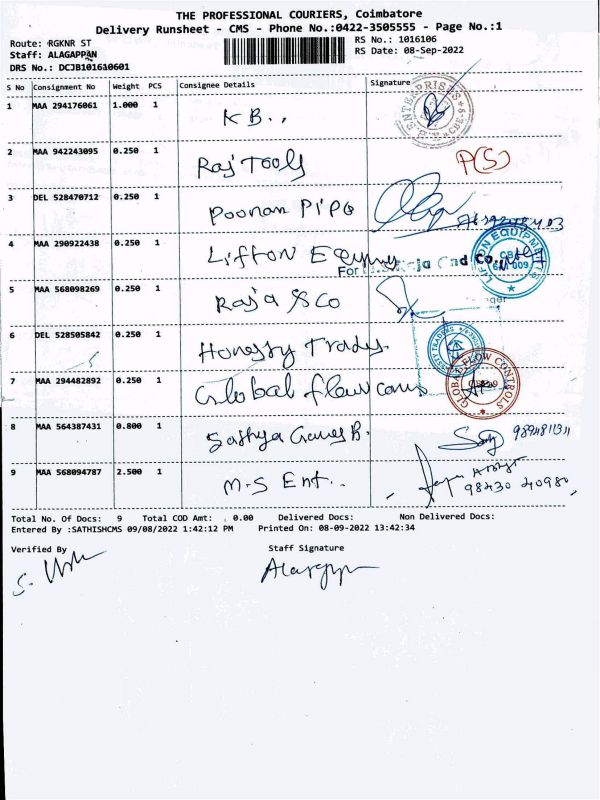 THE PROFESSIONAL COURIERS, Coimbatore
Delivery Runsheet - CMS - Phone No.:0422-3505555 - Page No.:1
Route: RGKNR ST
RS No.: 1016106
Staff: ALAGAPPAN
RS Date: 08-Sep-2022
DRS No.: DCJB101610601
S No Consignment No Weight PCS Consignee Details Signature
1 MAA 294176061 1.000 1 K B..
ENTERPRISES CBE-9
2 MAA 942243095 0.250 1 Raj Tools P(S)
3 DEL 528470712 0.250 1 Poonam Pipe
4 MAA 290922438 0.250 1 Lifton
For and Co.,
EQUIPMENTS
5 MAA 568098269 0.250 1 Raja & Co
6 DEL 528505842 0.250 1 Honesty Trades.
7 MAA 294482892 0.250 1 Global flow cons
GLOBAL FLOW CONTROLS
8 MAA 564387431 0.800 1 Sathya B.
9 MAA 568094787 2.500 1 M-S Ent..
98430 40980
Total No. Of Docs: 9 Total COD Amt: 0.00 Delivered Docs: Non Delivered Docs:
Entered By :SATHISHCMS 09/08/2022 1:42:12 PM Printed On: 08-09-2022 13:42:34
Verified By Staff Signature